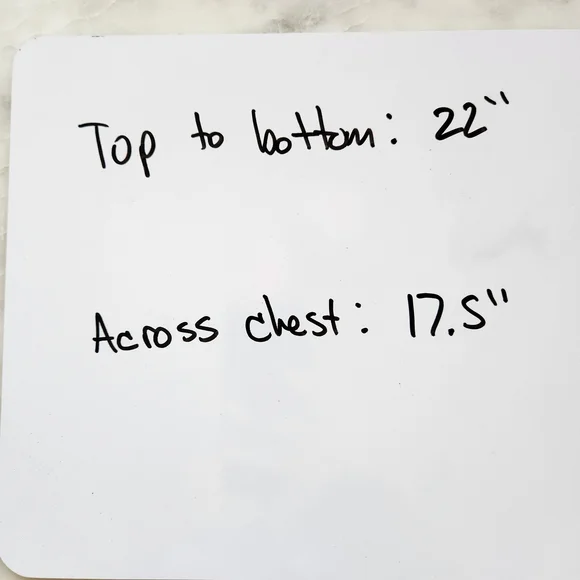 Top to bottom: 22"
Across chest: 17.5"